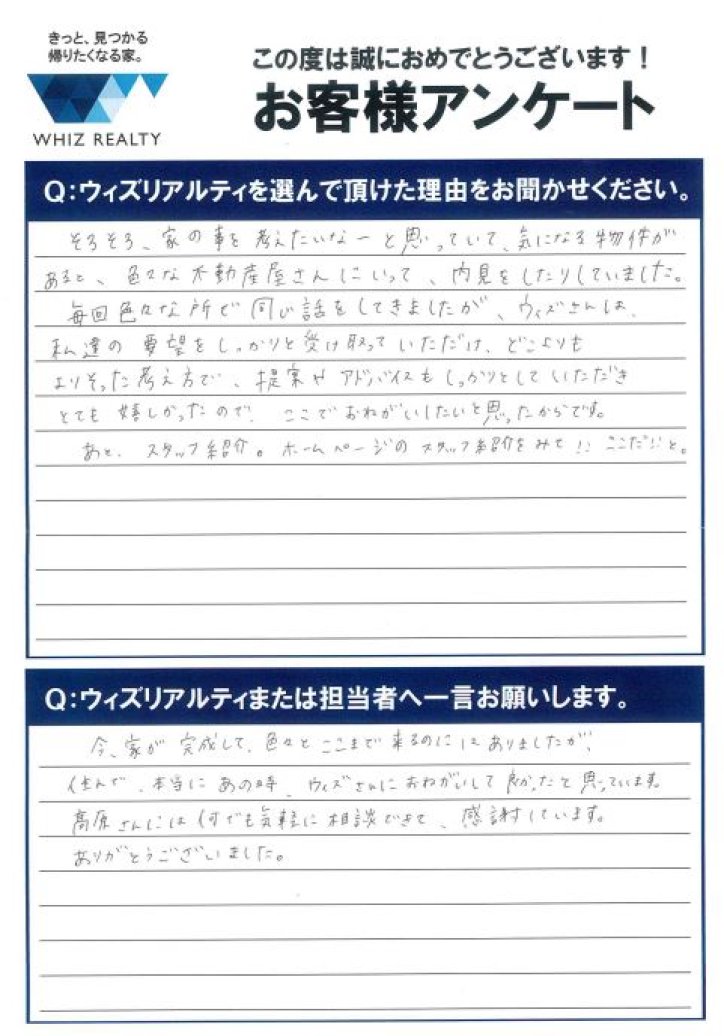 きっと、見つかる
帰りたくなる家。
WHIZ REALTY
この度は誠におめでとうございます!
お客様アンケート
Q:ウィズリアルティを選んで頂けた理由をお聞かせください。
そろそろ、家の事を考えたいなーと思っていて、気になる物件が
あると、色々な不動産屋さんにいって、内見をしたりしていました。
毎回色々な所で同じ話をしてきましたが、ウィズさんは、
私達の要望をしっかりと受け取っていただけ、どこよりも
よりそった考え方で、提案やアドバイスもしっかりとしていただき
とても嬉しかったので、ここでおねがいしたいと思ったからです。
あと、スタッフ紹介。ホームページのスタッフ紹介をみて!! ここだ!!と。
Q:ウィズリアルティまたは担当者へ一言お願いします。
今、家が完成して、色々とここまで来るのにはありましたが、
住んで、本当にあの時、ウィズさんにおねがいして良かったと思っています。
髙原さんには何でも気軽に相談できて、感謝しています。
ありがとうございました。